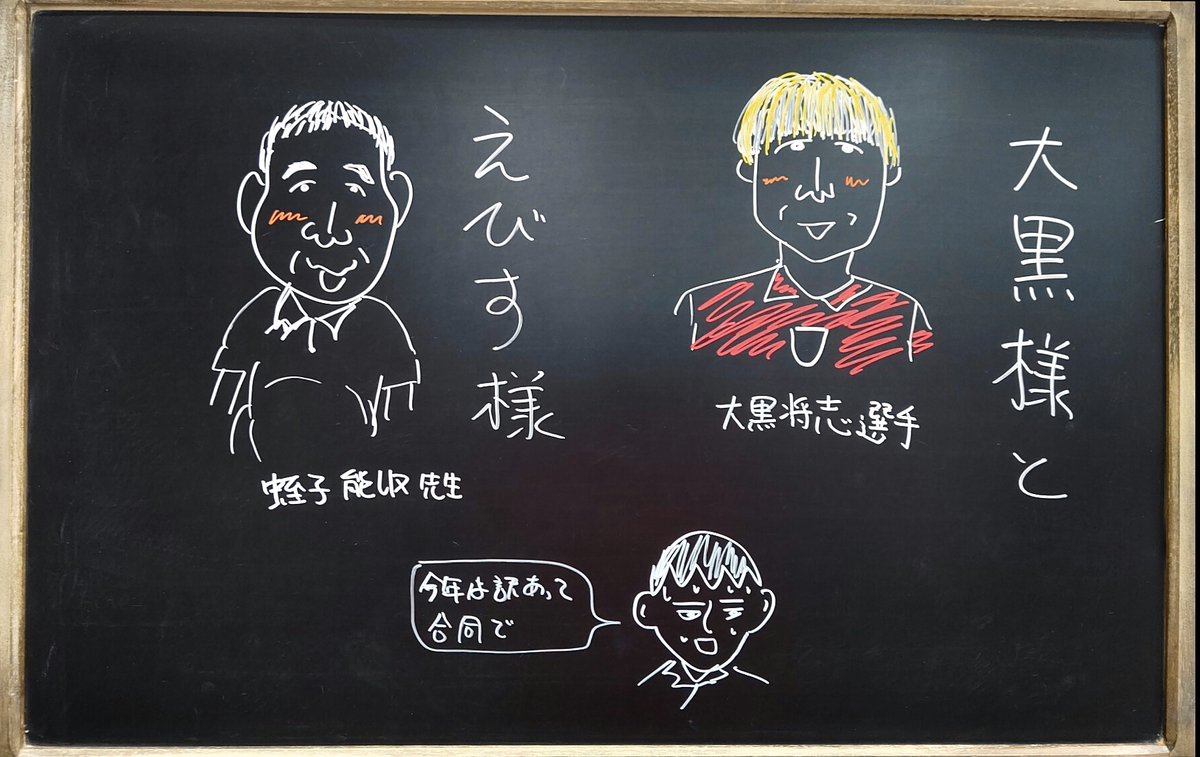 大黒様と
えびす様
大黒将志選手
蛭子能収先生
今年は訳あって
合同で